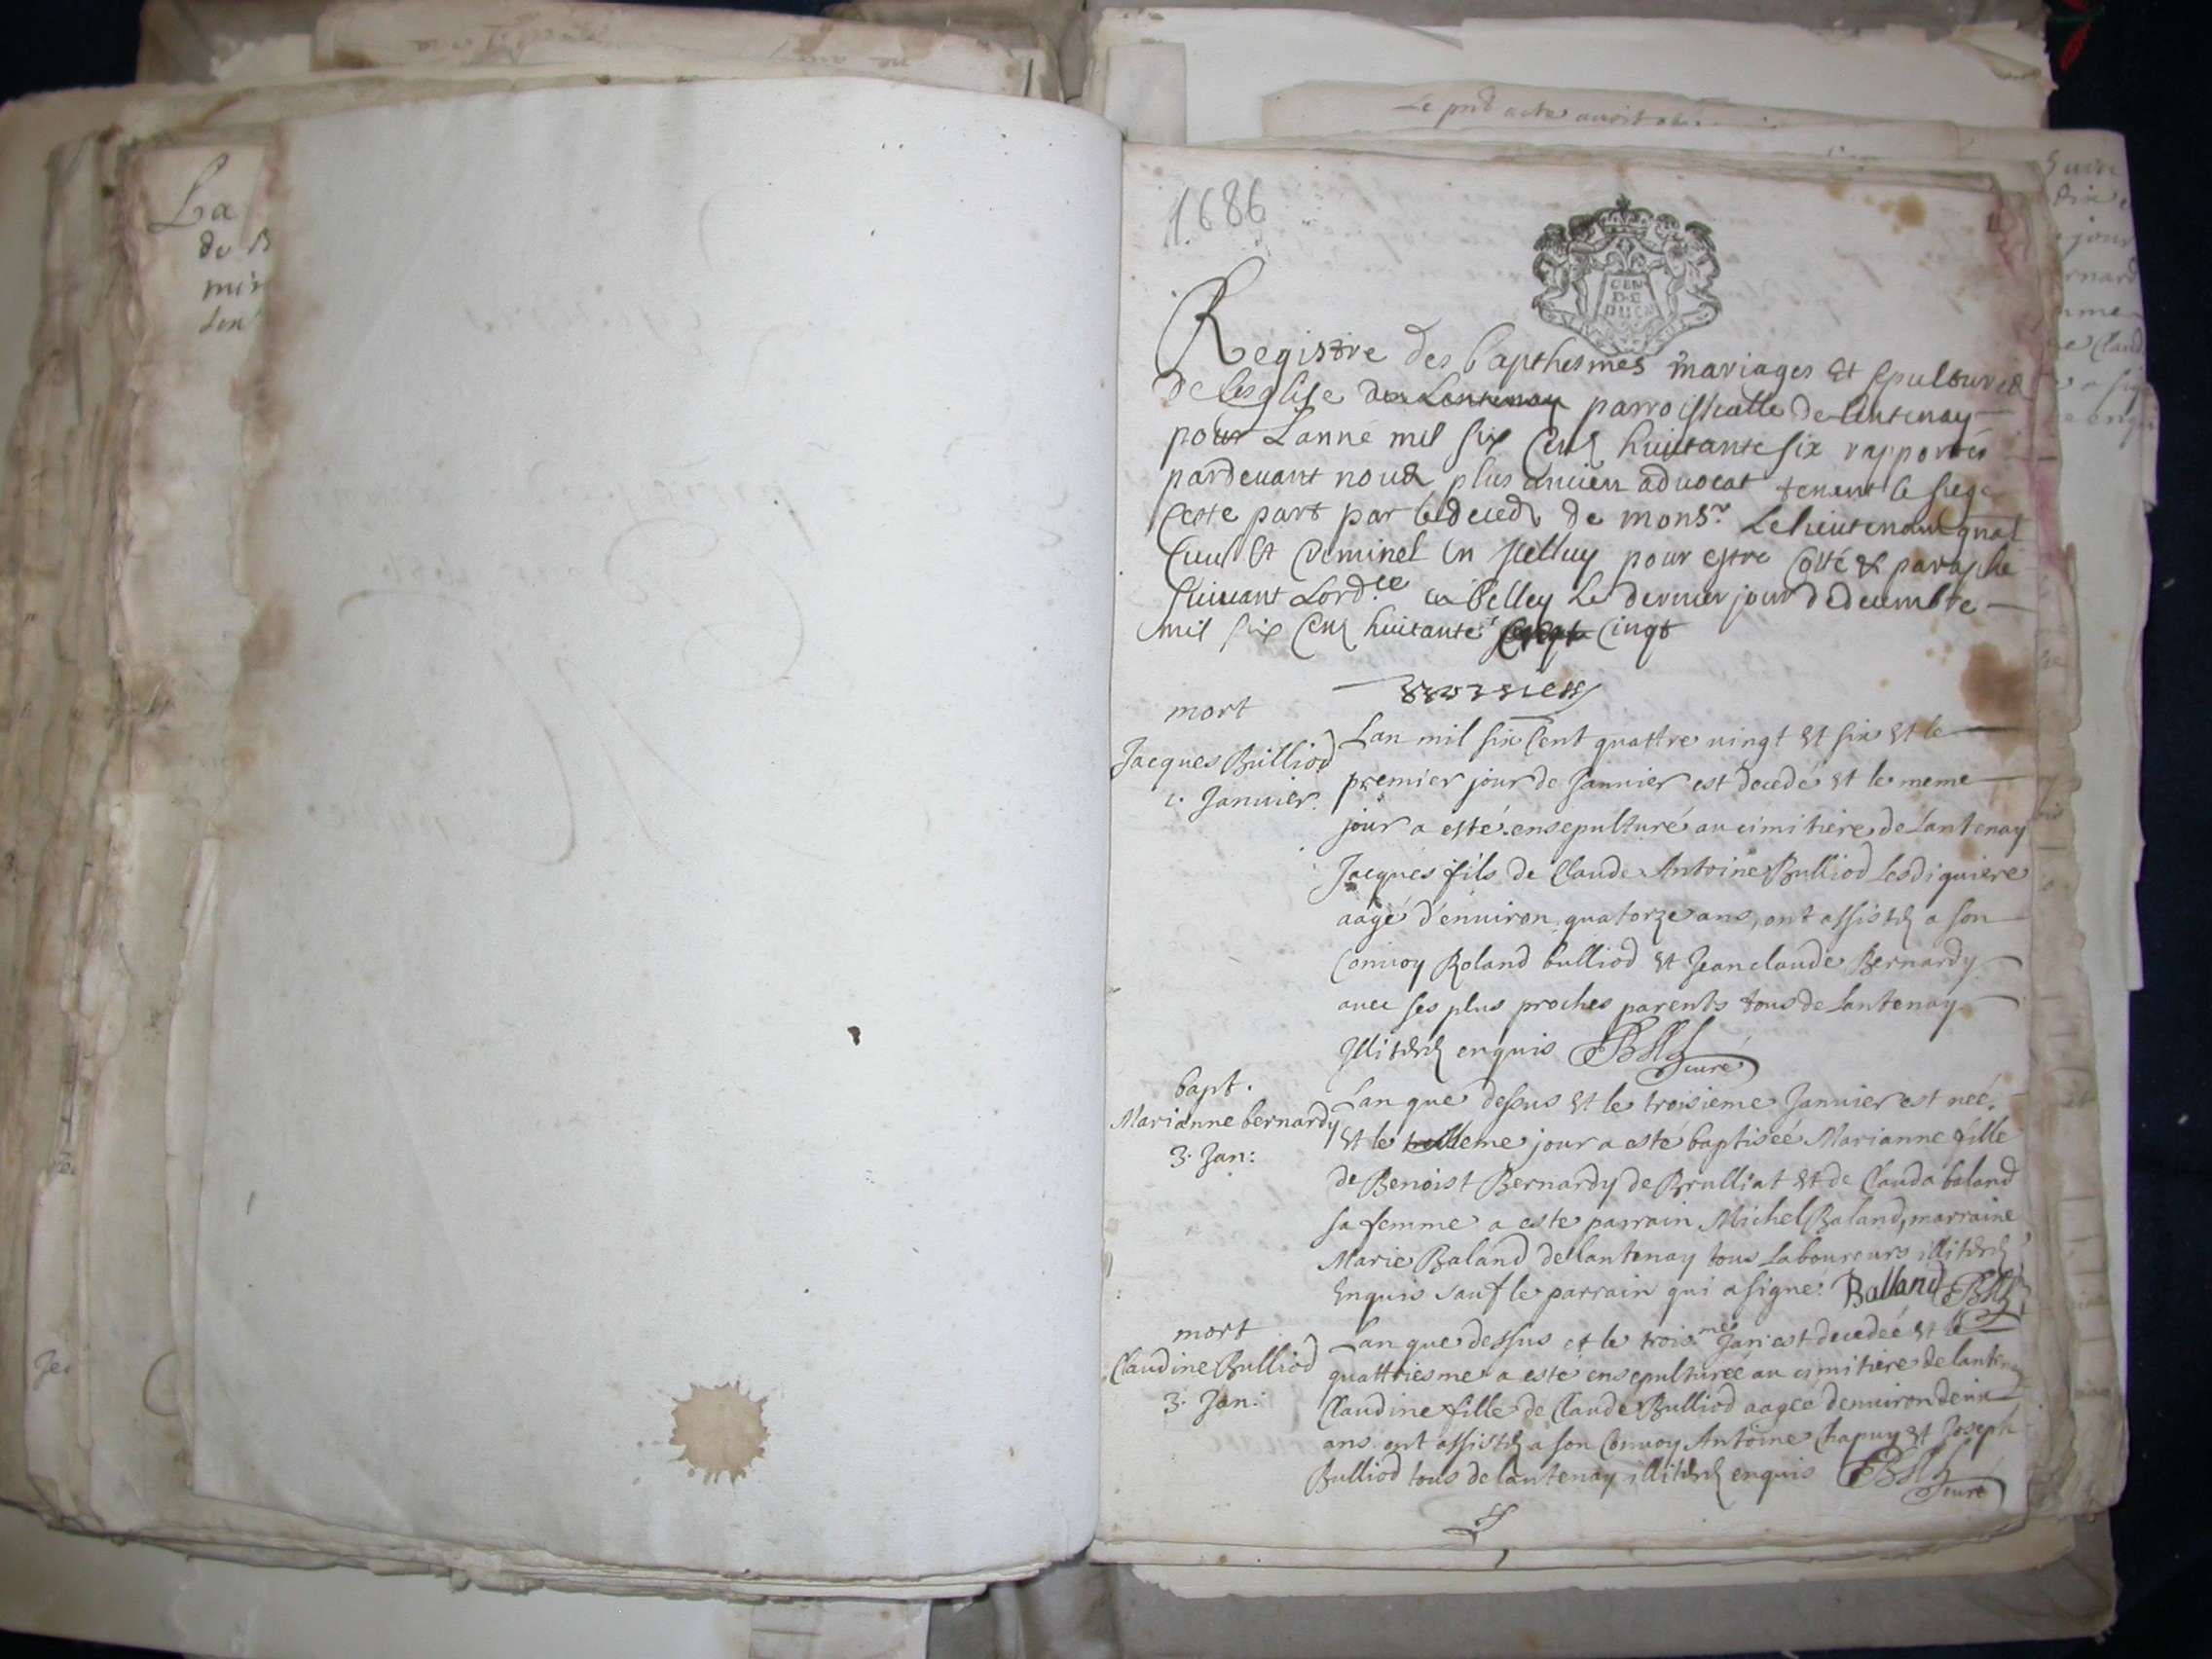 La
de
min
Le pnt acte
1686
GEN
DE
DUCH
Registre des bapthesmes mariages et sepultures
de lesglise de Lentenay parroissialle de lentenay
pour Lanné mil six Cens huictante six rapportés
pardevant nous plus ancien advocat tenant le siege
Ceste part par le deceds de monsr. Le lieutenant gnal
Civil et Criminel en Belley pour estre Cotté et paraphé
suivant Lordce. a Belley Le dernier jour de decembre
mil six Cens huictante Cinqt
mort
Jacques Bulliod
1. Januier
Lan mil six Cent quattre uingt et six et le
premier jour de Januier est decedé et le meme
jour a esté ensepulturé au cimitiere de Lantenay
Jacques fils de Claude Antoine Bulliod Lesdiguiere
aagé d'enuiron quatorze ans, ont assistez a son
Conuoy Roland bulliod et Jeanclaude Bernardy
auec ses plus proches parents tous de Lantenay
Illiterez enquis curé
bapt.
Marianne bernardy
3. Jan:
Lan que dessus et le troisieme Januier est neé,
et le meme jour a esté baptiseé Marianne fille
de Benoist Bernardy de Brulliat et de Clauda baland
sa femme a este parrain Michel Baland, marraine
Marie Baland de lantenay tous Laboureurs illiterez
Enquis sauf le parrain qui a signé. Balland
mort
Claudine Bulliod
3. Jan:
Lan que dessus et le troisme Jan: est decedeé et le
quattriesme a esté ensepultureé au cimitiere de lantenay
Claudine fille de Claude Bulliod aageé denuiron deux
ans. ont assistez a son Conuoy Antoine Chapuy et Joseph
Bulliod tous de lantenay illiterez enquis curé